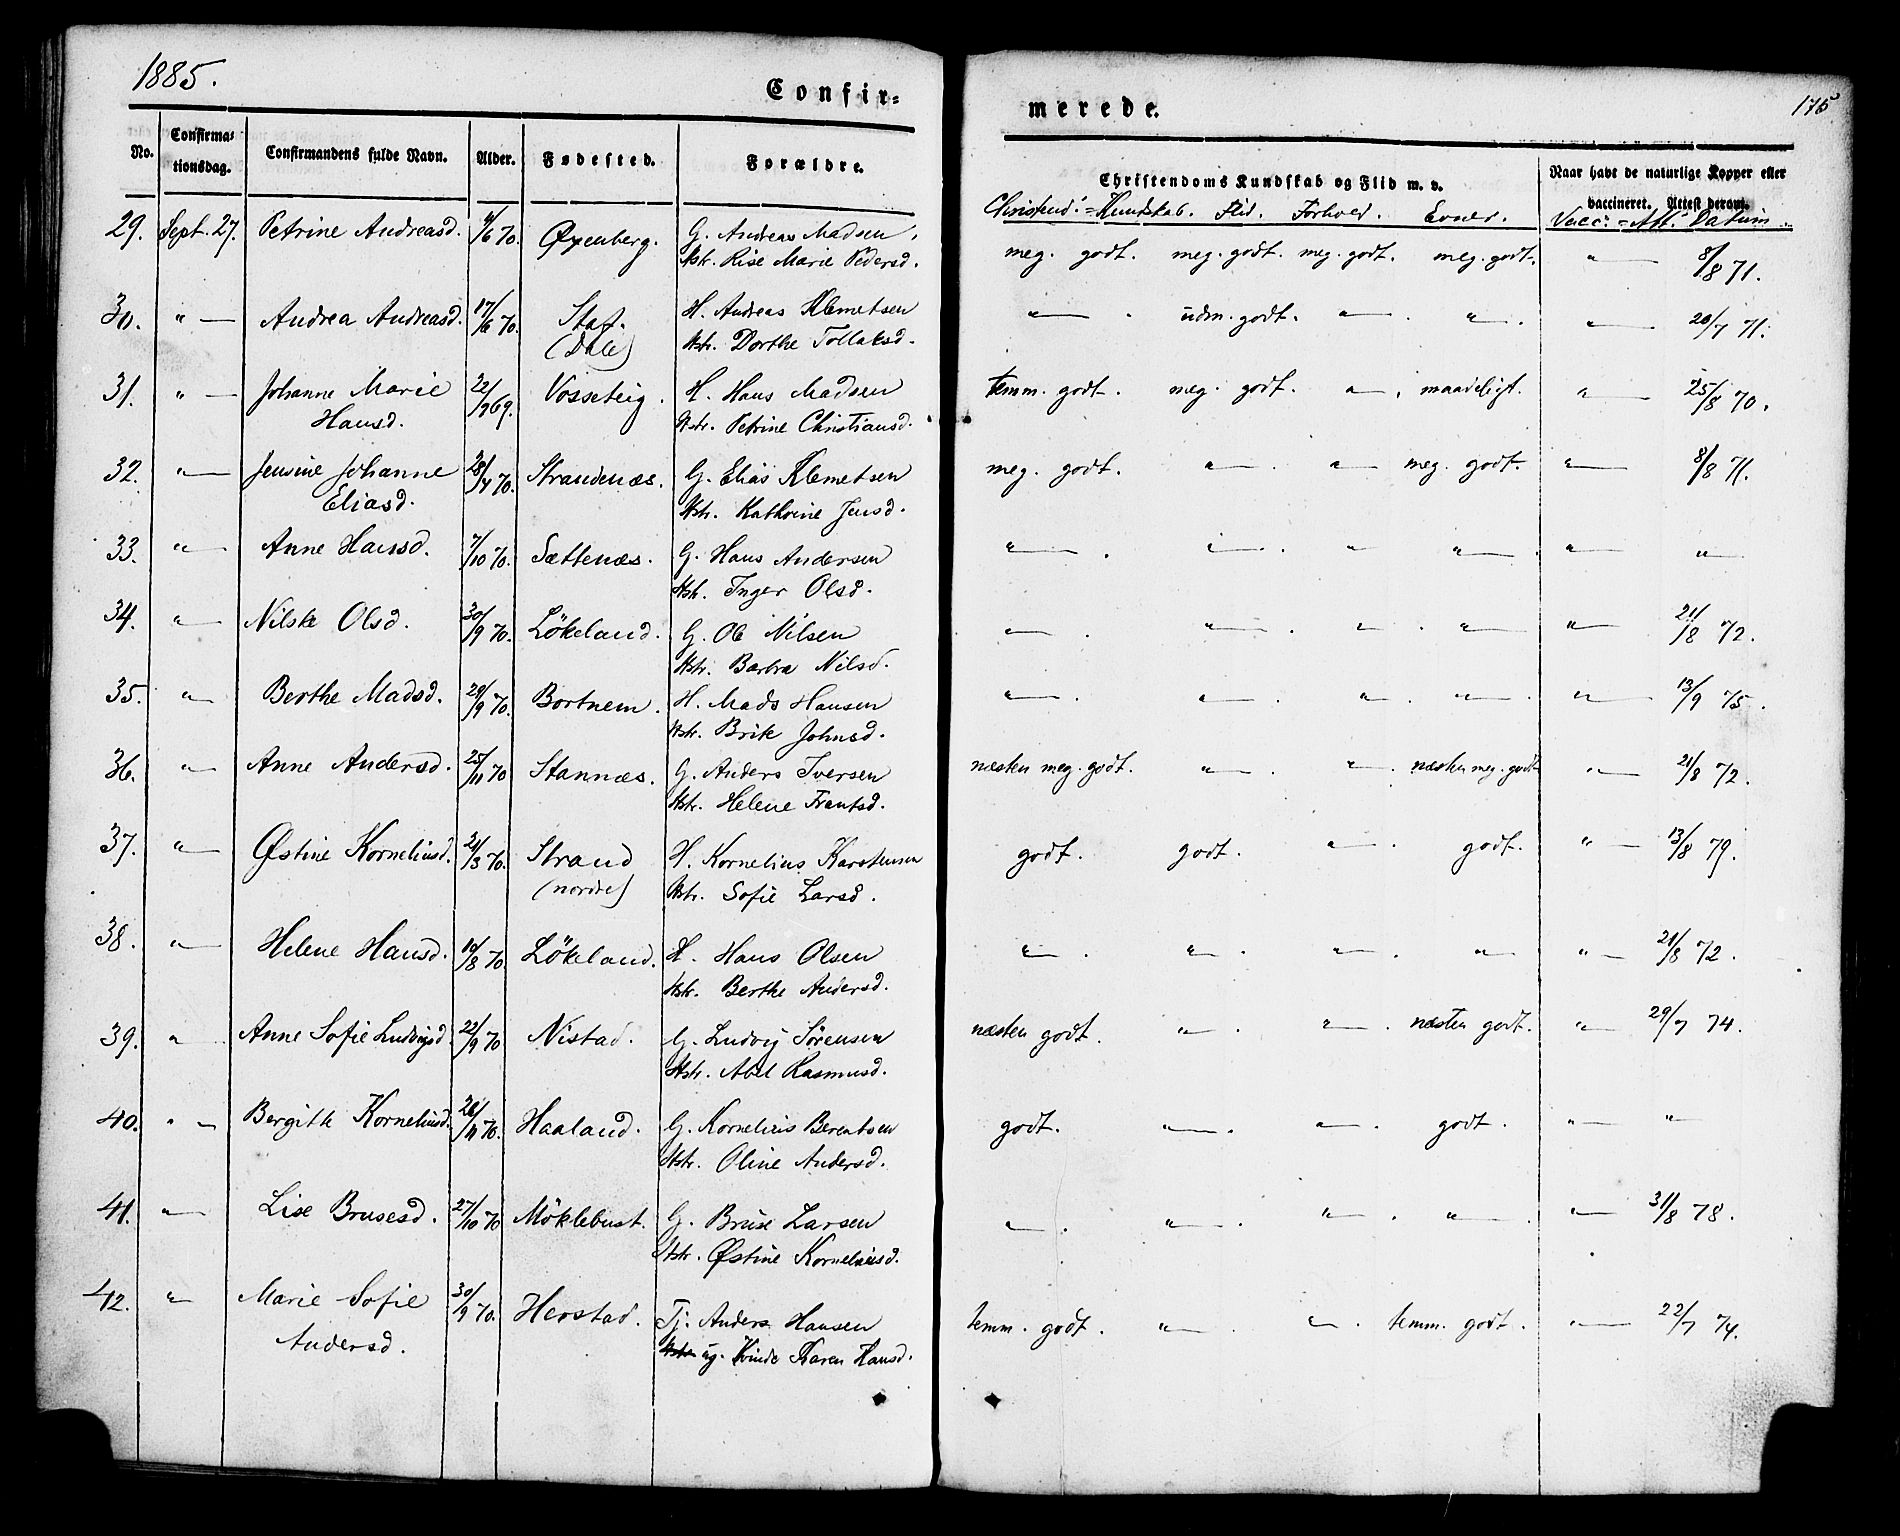 1885.
Confir-
merede.
175
No.
Confirma-
tionsdag.
Confirmandens fulde Navn.
Alder.
Fødested.
Forældre.
Christendoms Kundskab og Flid m. v.
Naar havt de naturlige Kopper eller
vaccineret. Attest derom.
Christend.=Kundskab. Flid. Forhold. Evner.
Vacc.=Att. Datum.
29. Sept. 27. Petrine Andreasd. 4/6 70. Øxenberg. G. Andreas Madsen, meg. godt. meg. godt. meg. godt. meg. godt. " 8/8 71.
Hstr. Lise Marie Pedersd.
30. " Andrea Andreasd. 17/6 70. Staf. H. Andreas Klemetsen " . udm. godt. " . " . " 20/7 71.
(Dale) Hstr. Dorthe Tollaksd.
31. " Johanne Marie 22/9 69. Vosseteig. H. Hans Madsen temm. godt. meg. godt. " . maadeligt. " 25/8 70.
Hansd. Hstr. Petrine Christiansd.
32. " Jensine Johanne 28/4 70. Strandenæs. G. Elias Klemetsen meg. godt. " . " meg. godt. " 8/8 71.
Eliasd. Hstr. Kathrine Jensd.
33. " Anne Hansd. 7/10 70. Sættenæs. G. Hans Andersen " . " . " " . " "
Hstr. Inger Olsd.
34. " Nilske Olsd. 30/9 70. Lökeland. G. Ole Nilsen " . " . " . " " 21/8 72.
Hstr. Barbra Nilsd.
35. " Berthe Madsd. 29/9 70. Bortnem. H. Mads Hansen " . " . " . " . " 13/9 75.
Hstr. Brite Johnsd.
36. " Anne Andersd. 25/11 70 Stannæs. G. Anders Iversen næsten meg. godt. " . " . næsten meg. godt " 21/8 72.
Hstr. Helene Frantsd.
37. " Østine Kornelisd. 21/3 70. Strand H. Kornelius Karstensen godt. godt. " . godt. " 13/8 79.
(nordre) Hstr. Sofie Larsd.
38. " Helene Hansd. 10/8 70. Lökeland. H. Hans Olsen " . " . " . " " 21/8 72.
Hstr. Berthe Andersd.
39. " Anne Sofie Ludvigsd 22/9 70 Nistad. G. Ludvig Sörensen næsten godt. " . " . næsten godt. " 29/7 74.
Hstr. Abel Rasmusd.
40. " Bergithe Kornelisd. 26/11 70. Haaland. G. Kornelius Berentsen godt. " . " . godt. " "
Hstr. Oline Andersd.
41. " Lise Brusesd. 27/10 70 Möklebust. G. Bruse Larsen " . " . " . " . " 31/8 78.
Hstr. Østine Korneliusd.
42. " Marie Sofie 30/9 70. Herstad. Tj. Anders Hansen temm. godt. " . " . temm. godt. " 22/7 74.
Andersd. ug. Kvinde Karen Hansd.